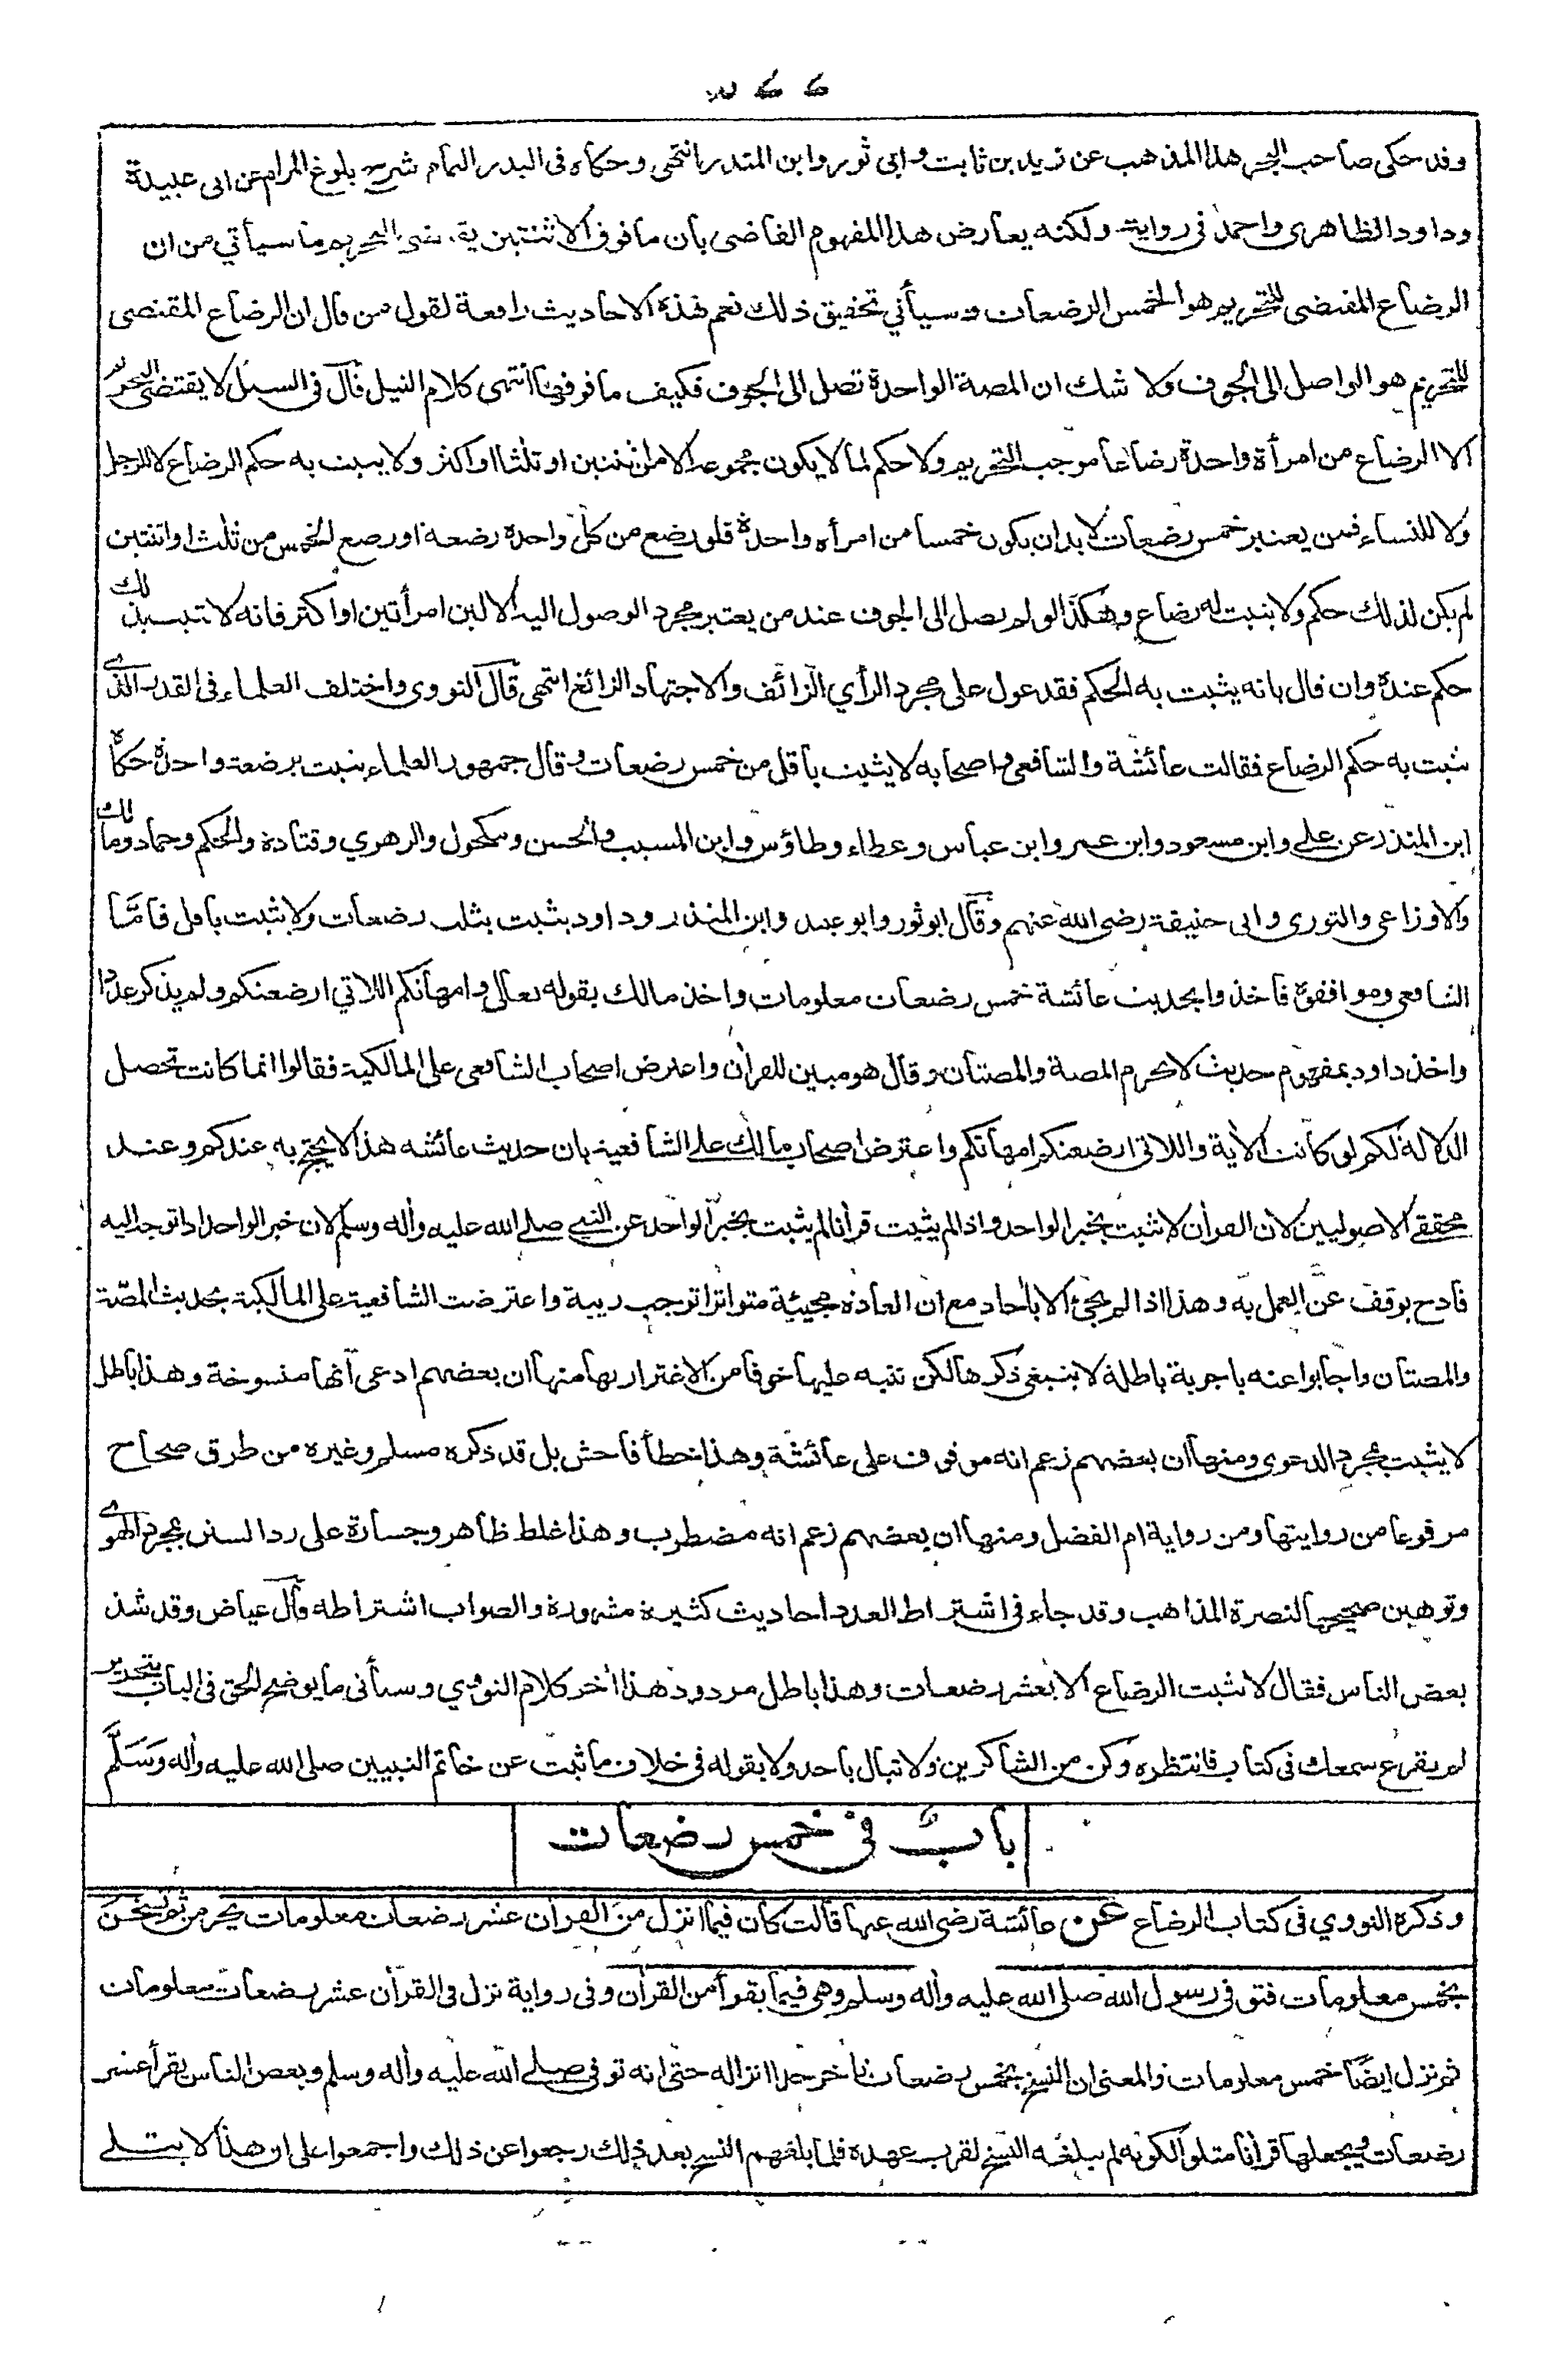 ٤٤٣
وقد حكى صاحب البحر هذا المذهب عن زيد بن ثابت وابى ثور وابن المنذر انتهى وحكاه فى البدر التمام شرح بلوغ المرام عن ابى عبيدة
وداود الظاهرى واحمد فى رواية ولكنه يعارض هذا المفهوم القاضى بان ما فوق الاثنتين يقتضى التحريم ما سيأتي من ان
الرضاع المقتضى للتحريم هو الخمس الرضعات وسيأتي تحقيق ذلك نعم هذه الاحاديث رافعة لقول من قال ان الرضاع المقتضى
للتحريم هو الواصل الى الجوف ولا شك ان المصة الواحدة تصل الى الجوف فكيف ما فوقها انتهى كلام النيل قال فى السيل لا يقتضى التحريم
الا الرضاع من امرأة واحدة رضاعا موجب التحريم ولا حكم لما لا يكون مجموعه الا من ثنتين او ثلثا او اكثر ولا يثبت به حكم الرضاع لا للرجل
ولا للنساء فمن يعتبر خمس رضعات لا بد ان يكون خمسا من امرأه واحدة فلو رضع من كل واحدة رضعة او رضع الخمس من ثلث او اثنتين
لم يكن لذلك حكم ولا يثبت له رضاع وهكذا لو لم يصل الى الجوف عند من يعتبر مجرد الوصول اليه الا لبن امرأتين او اكثر فانه لا يثبت بذلك
حكم عنده وان قال بانه يثبت به الحكم فقد عول على مجرد الرأي الزائف والاجتهاد الزائغ انتهى قال النووى واختلف العلماء فى القدر الذى
يثبت به حكم الرضاع فقالت عائشة والشافعى واصحابه لا يثبت باقل من خمس رضعات وقال جمهور العلماء يثبت برضعة واحدة حكاه
ابن المنذر عن على وابن مسعود وابن عمر وابن عباس وعطاء وطاؤس وابن المسيب والحسن ومكحول والزهري وقتادة والحكم وحماد ومالك
والاوزاعى والثورى وابى حنيفة رضى الله عنهم وقال ابو ثور وابو عبيد وابن المنذر وداود يثبت بثلث رضعات ولا يثبت باقل فامّا
الشافعى وموافقوه فاخذوا بحديث عائشة خمس رضعات معلومات واخذ مالك بقوله تعالى وامهاتكم اللاتي ارضعنكم ولم يذكر عددا
واخذ داود بمفهوم حديث لا تحرم المصة والمصتان وقال هو مبين للقرأن واعترض اصحاب الشافعى على المالكية فقالوا انما كانت تحصل
الدلالة لكم لو كانت الأية واللاتى ارضعنكم امهاتكم واعترض اصحاب مالك على الشافعية بان حديث عائشه هذا لا يحتج به عندكم وعند
محققى الاصوليين لان القرأن لا يثبت بخبر الواحد واذا لم يثبت قرأنا لم يثبت بخبر الواحد عن النبى صلى الله عليه وأله وسلم لان خبر الواحد اذا توجه اليه
قادح يوقف عن العمل به وهذا اذا لم يجئ الا بأحاد مع ان العادة مجيئه متواترا توجب ريبة واعترضت الشافعية على المالكية بحديث المصّة
والمصتان واجابوا عنه باجوبة باطلة لا ينبغى ذكرها لكن ننبه عليها خوفا من الاغترار بها منها ان بعضهم ادعى انها منسوخة وهذا باطل
لا يثبت بمجرد الدعوى ومنها ان بعضهم زعم انه موقوف على عائشة وهذا خطأ فاحش بل قد ذكره مسلم وغيره من طرق صحاح
مرفوعا من روايتها ومن رواية ام الفضل ومنها ان بعضهم زعم انه مضطرب وهذا غلط ظاهر وجسارة على رد السنن بمجرد الهوى
وتوهين صحيحها لنصرة المذاهب وقد جاء فى اشتراط العدد احاديث كثيرة مشهورة والصواب اشتراطه قال عياض وقد شذ
بعض الناس فقال لا يثبت الرضاع الا بعشر رضعات وهذا باطل مردود هذا أخر كلام النووي وسيأتى ما يوضح الحق فى الباب بتحرير
لم يقرع سمعك فى كتاب فانتظره وكن من الشاكرين ولا تبال باحد ولا بقوله فى خلاف ما ثبت عن خاتم النبيين صلى الله عليه وأله وَسَلَّم
بابٌ فى خمس رضعات
وذكره النووي فى كتاب الرضاع عن عائشة رضى الله عنها قالت كان فيما انزل من القرأن عشر رضعات معلومات يحرمن ثم نسخن
بخمس معلومات فتوفى رسول الله صلى الله عليه وأله وسلم وهى فيما يقرأ من القرأن وفى رواية نزل فى القرأن عشر رضعات معلومات
ثم نزل ايضًا خمس معلومات والمعنى ان النسخ بخمس رضعات تأخر جدا انزاله حتى انه توفى صلى الله عليه وأله وسلم وبعض الناس يقرأ عشر
رضعات ويجعلها قرأنا متلوا لكونه لم يبلغه النسخ لقرب عهده فلما بلغهم النسخ بعد ذلك رجعوا عن ذلك واجمعوا على ان هذا لا يتلى